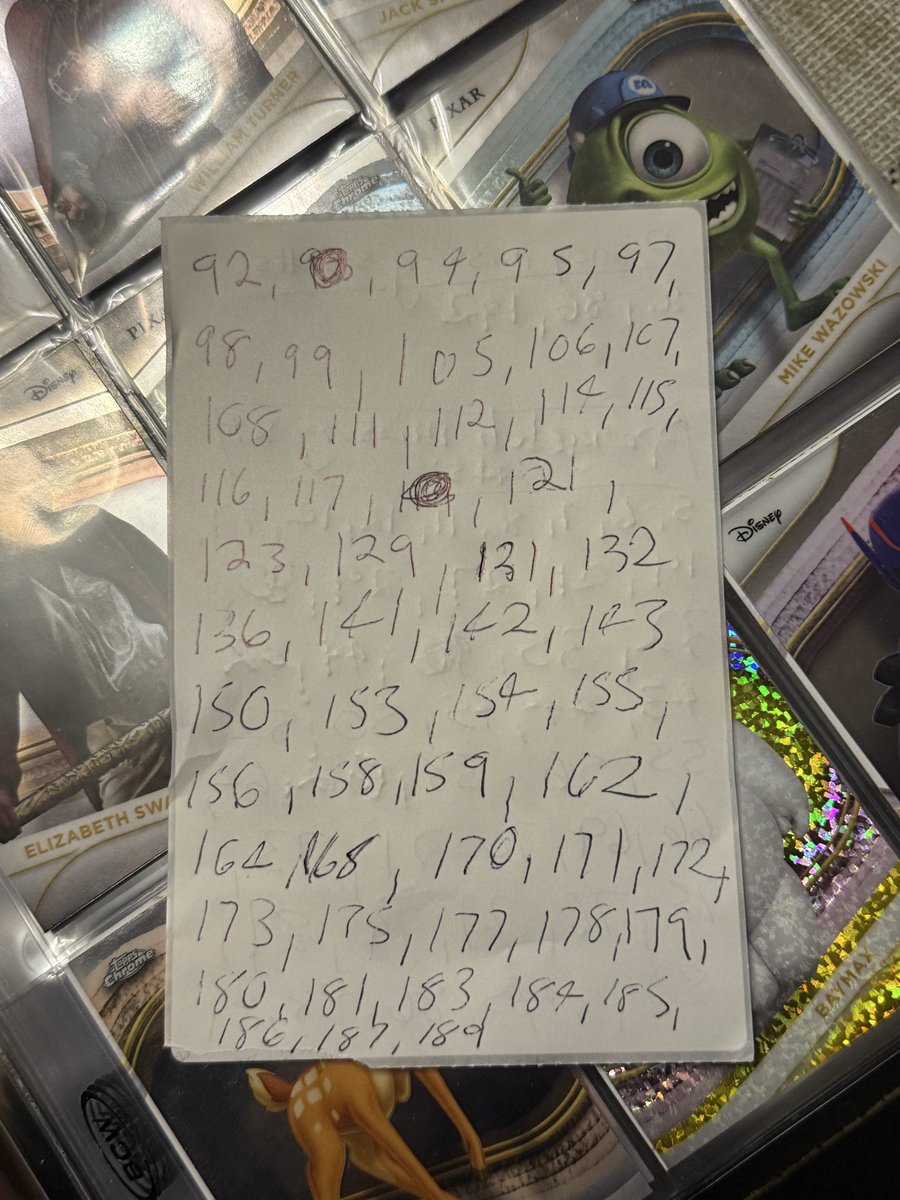 JACK S
WILLIAM TURNER
PIXAR
Topps Chrome
MIKE WAZOWSKI
PIX
Disney
92, 9, 94, 95, 97,
98, 99, 105, 106, 107,
108, 111, 112, 114, 115,
116, 117, , 121,
123, 129, 131, 132
136, 141, 142, 143
150, 153, 154, 155,
156, 158, 159, 162,
164, 168, 170, 171, 172,
173, 175, 177, 178, 179,
180, 181, 183, 184, 185,
186, 187, 189
Disney
ELIZABETH SWA
Topps Chrome
BAYMAX
BCW